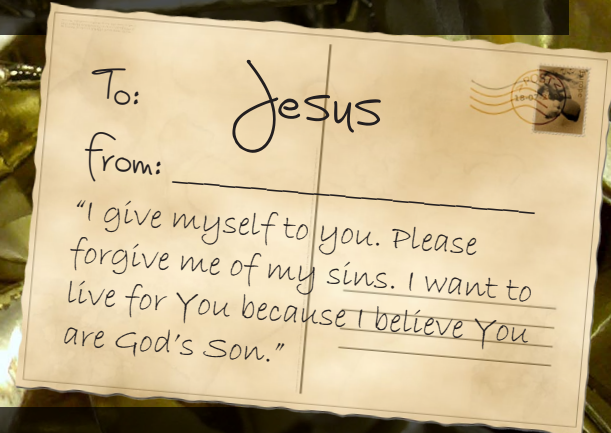 To: Jesus
from:
"I give myself to you. Please
forgive me of my sins. I want to
live for You because I believe You
are God's Son."